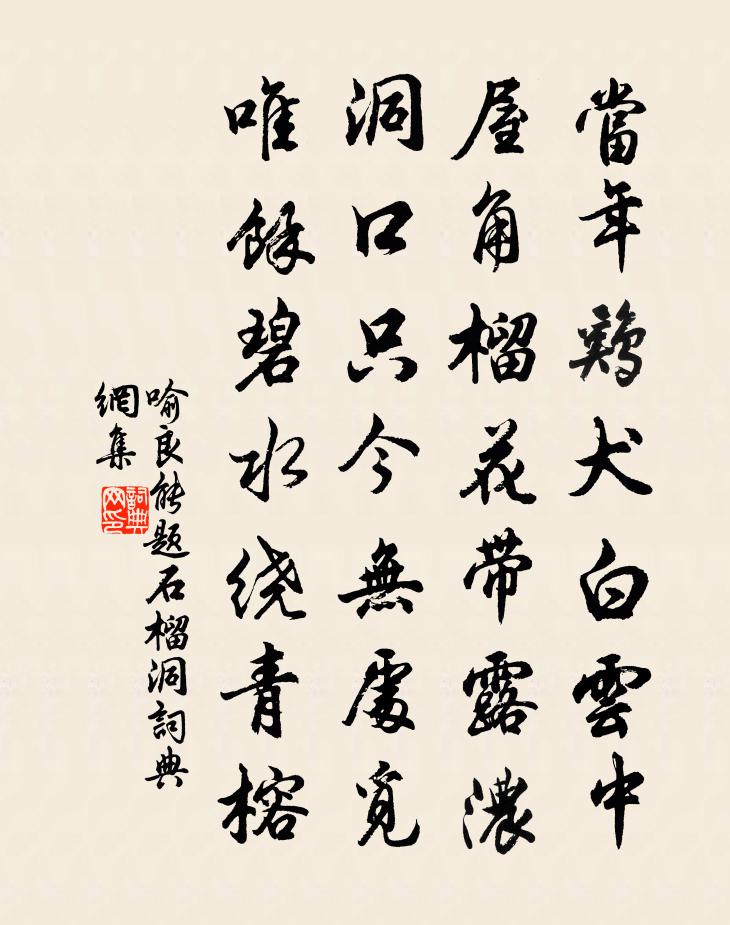 當年鷄犬白雲中
屋角榴花帶露濃
洞口只今無處覓
唯餘碧水绕青榕
喻良能题石榴洞詞典
網集
詞典網印